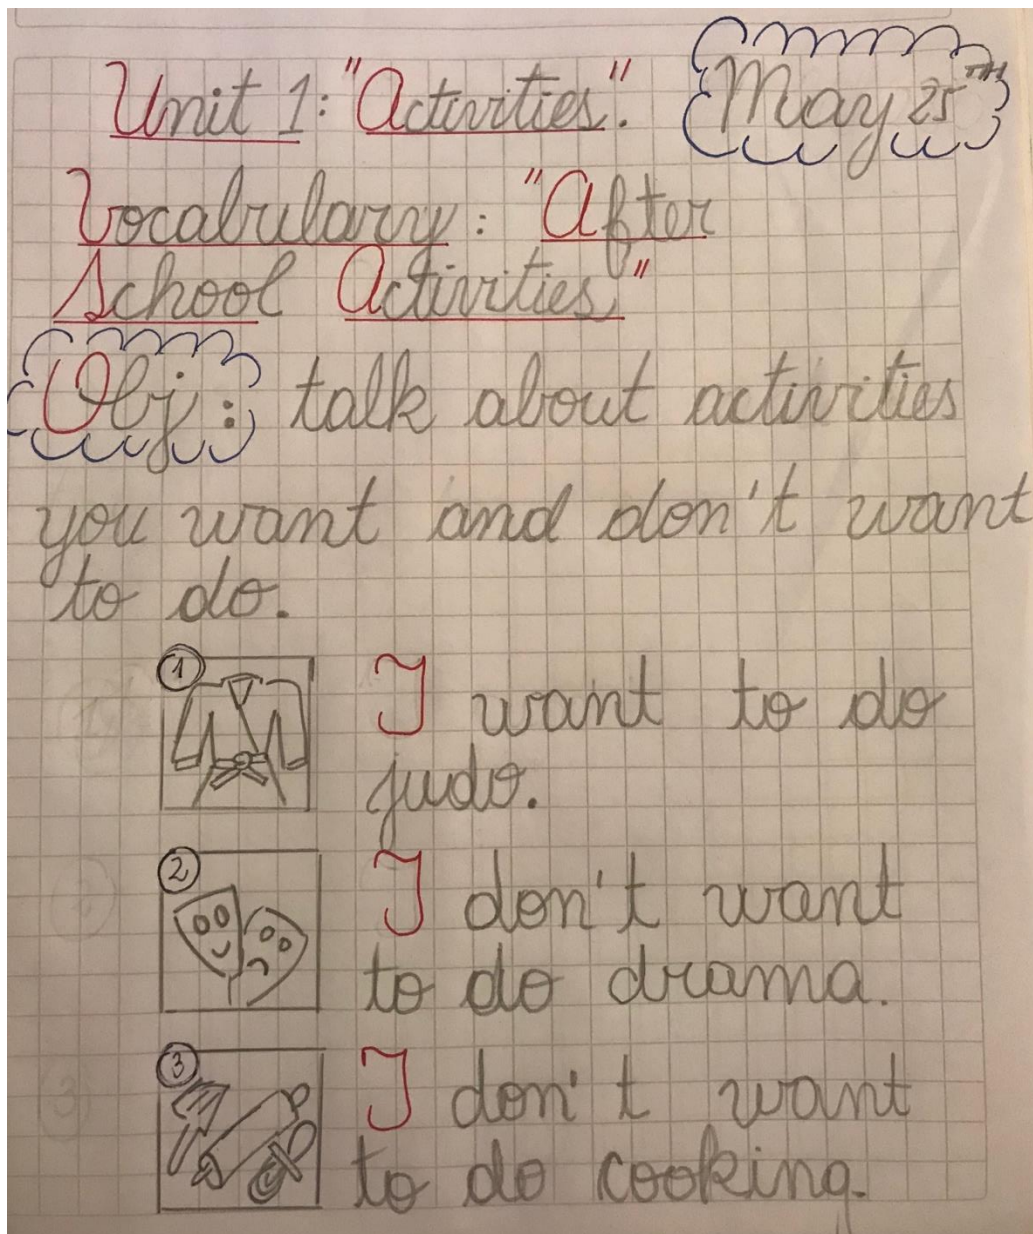 Unit 1: "Activities". May 25TH
Vocabulary: "After
School Activities"
Obj: talk about activities
you want and don't want
to do.
1 I want to do
judo.
2 I don't want
to do drama.
3 I don't want
to do cooking.